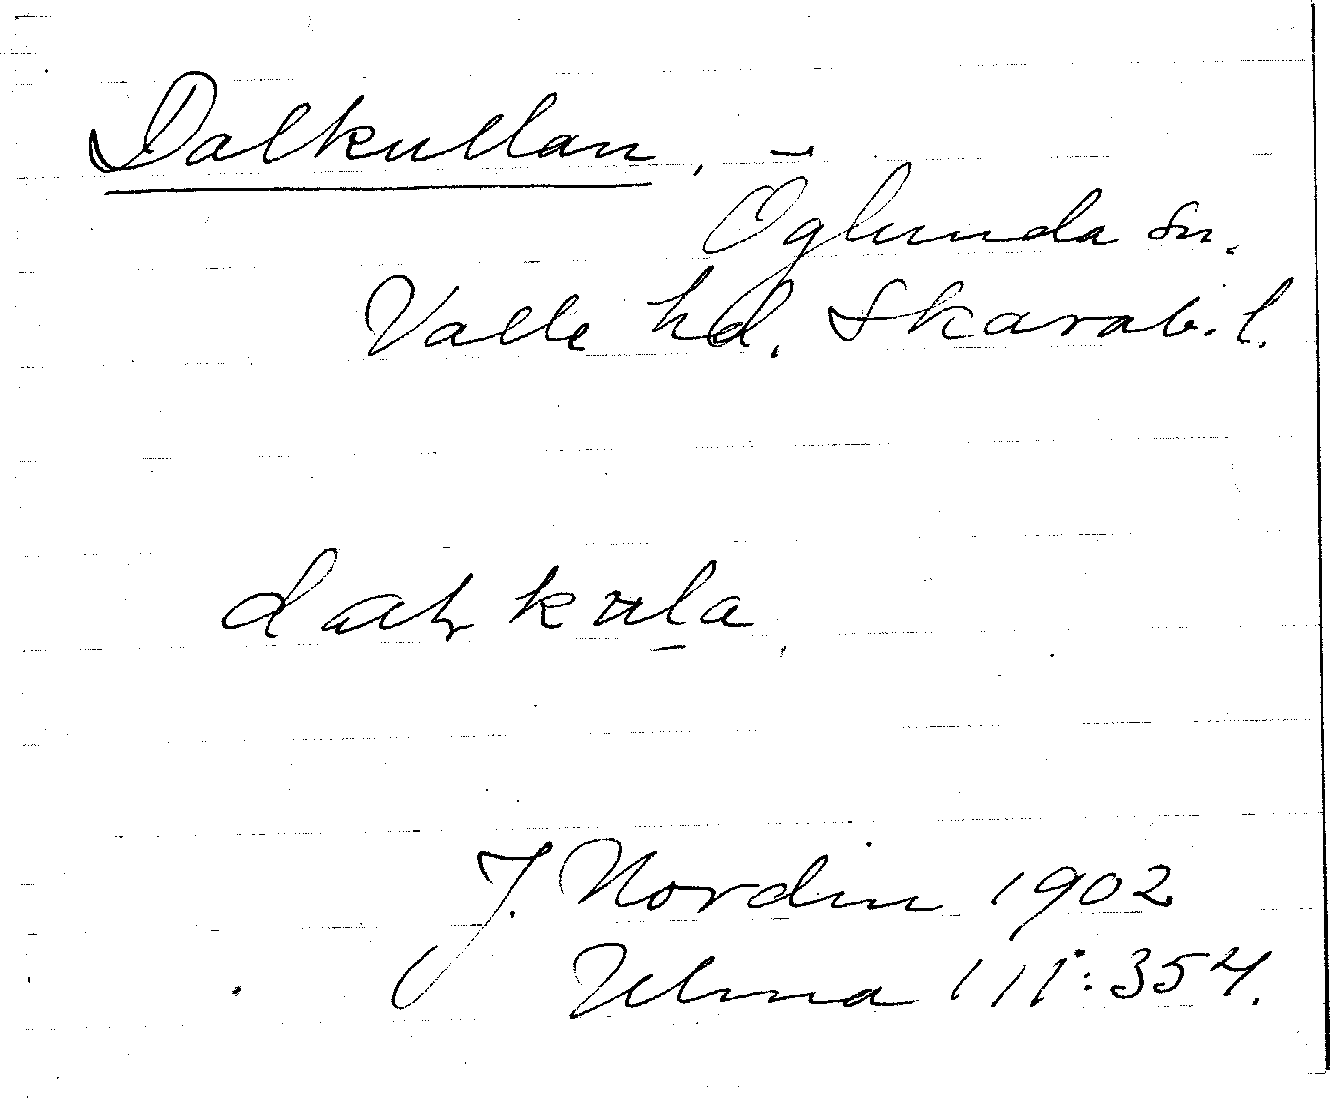 Dalkullan,
Öglunda sn.
Valle hd. Skarab. l.
J. Nordin 1902
Ulma 111:354.